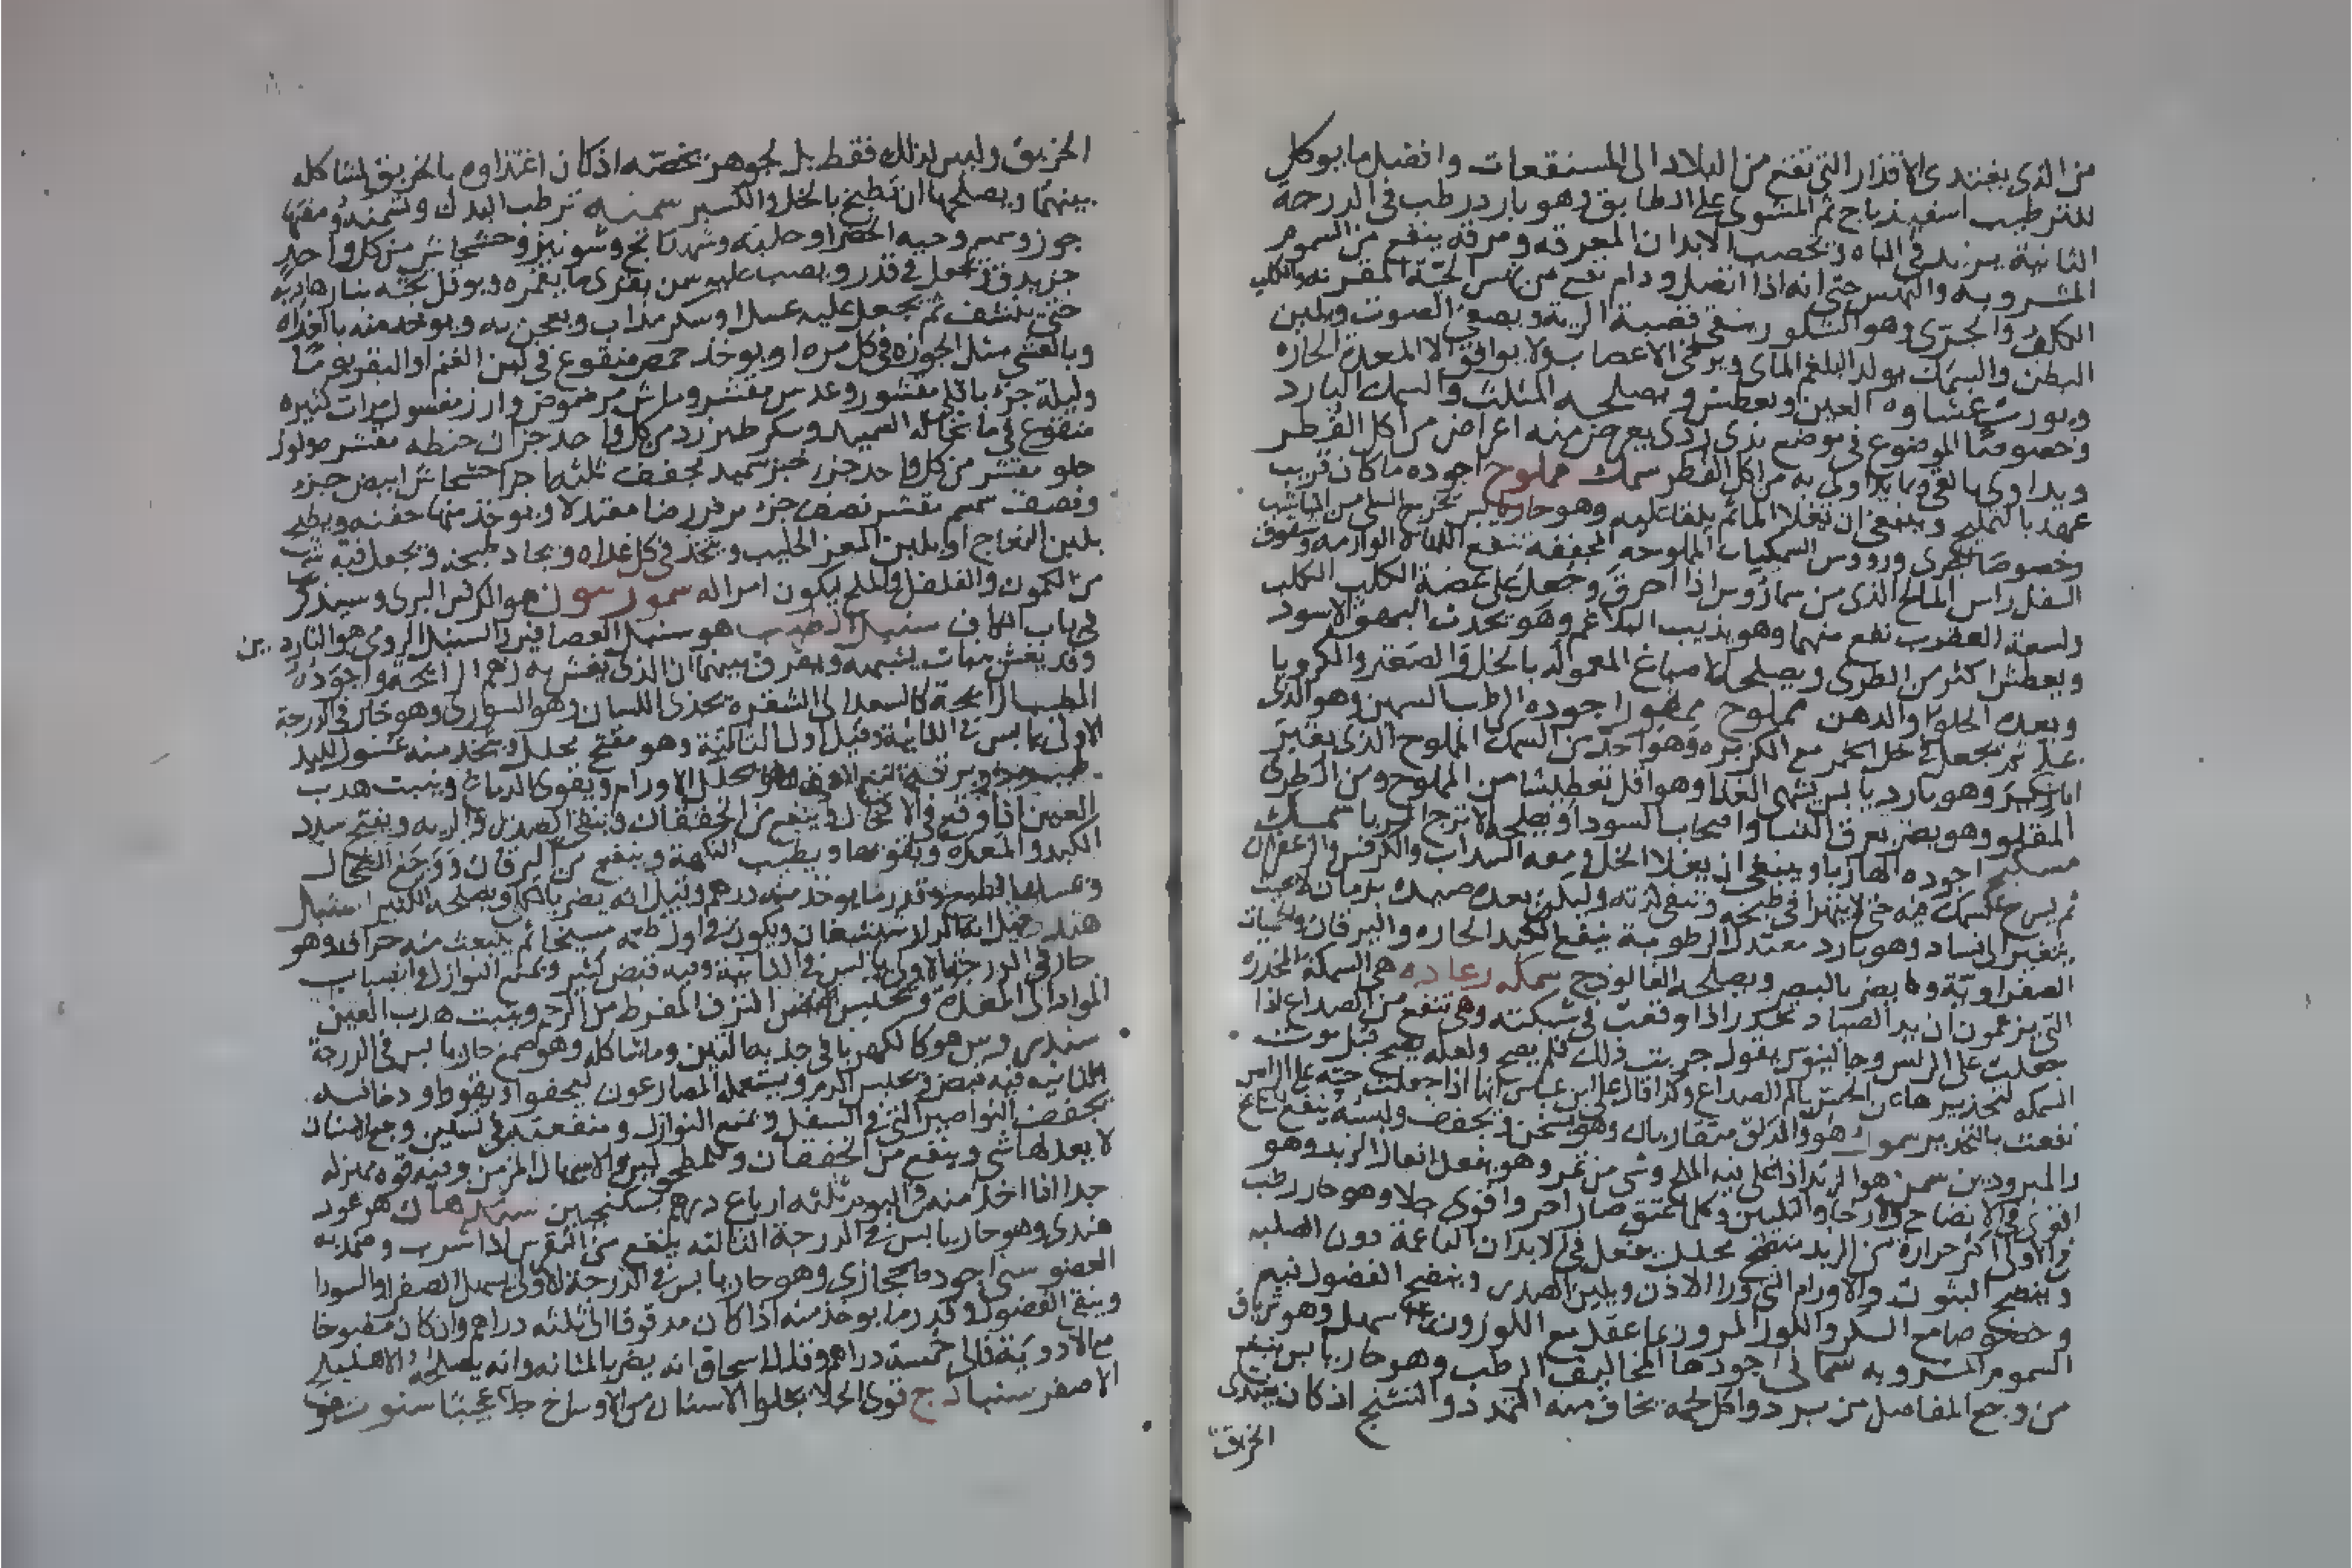 من الذي يغتذي الاقذار التي تقع من البلاد الى المستنقعات وافضل ما يوكل
للترطيب اسفيذباج ثم المشوي على الطابق وهو بارد رطب في الدرجة
الثانية يزيد في الباه ويخصب الابدان ومرقه ينفع من السموم
المشروبه والنهس حتى انه اذا ودام نفع من نهس الحية المقرنه والكلب
الكلب والجري وهو السلور ينقي قصبة الرية ويصفي الصوت ويلين
البطن والسمك يولد البلغم الماي ويرخي الاعصاب ولا يوافق الا المعدة الحاره
ويورث غشاوه العين ويعطش ويصلحه المثلث والسمك البارد
وخصوصا الموضوع في موضع ندي ردي يعرض منه اعراض من اكل الفطر
ويداوى بالقي وبما يداوى به من اكل الفطر سمك مملوح اجوده ما كان قريب
عهد بالتمليح وينبغي ان وهو حار يابس يخرج السلي من
وخصوصا الجري وروس السميكات المملوحه المجففه تنفع اللهاة الوارمه
راس المالح الذي من سماروس اذا احرق وجعل على عضة الكلب الكلب
ولسعة العقرب نفع منهما وهو يذيب البلاغم وهو يحدث البهق الاسود
ويعطش اكثر من الطري ويصلحه الاصباغ المعموله بالخل والصعتر والكرويا
وبعده الحلوا والدهن مملوح ممقور اجوده الرطب السمين وهو الذي
يجعل في خل الخمر مع الكزبره وهو احد من السمك المملوح الذي بغير
وهو بارد يابس يشهي الغدا وهو اقل تعطيشا من المملوح ومن الطري
المقلو وهو يضر بعرق النسا واصحاب السودا ويصلحه الاترج المربا سمك
مسكبج اجوده الهازبا وينبغي ان يغلا الخل ومعه السداب والكرفس والزعفران
ثم يسرح السمك فيه حتى لا يتهرا في طبخه وتبقى لذته وليكن بعده صيده بزمان
يتغير الى فساد وهو بارد معتدل الرطوبة ينفع الكبد الحاره واليرقان والحميات
الصفراويه وهو يضر بالبصر ويصلحه الفالوذج سمكه رعاده هي السمكة المخدرة
التي يزعمون ان يد الصياد تخدر اذا وقعت في شبكته وهي تنفع من الصداع اذا
جعلت على الراس وجالينوس يقول جربت ذلك فلم يصح ولعله يصح قبل موت
السمكه وكذا قال علي ابن عباس انها اذا جعلت حيه على الراس
نفعت بالتخدير سمور هو والدلق متقاربان وهو يسخن ويجفف ولبسه ينفع المشايخ
والمبرودين سمن هو الزبد اذا غلي فيه الملح وشي من تمر وهو يفعل افعال الزبد وهو
اقوى في الانضاح والارخا والتليين وكلما عتق صار احر واقوى جلا وهو حار رطب
في الاولى اكثر حرارة من الزبد منضج محلل يفعل في الابدان الناعمة دون الصلبه
وينضج البثور والاورام التي ورا الاذن ويلين الصدر وينضج الفضول فيه
وخصوصا مع السكر واللوز المر وربما عقل مع اللوزون وهو ترياق
السموم المشروبه سماني اجودها المخاليف الرطب وهو حار يابس ينفع
من وجع المفاصل من برد واكل لحمه يخاف منه التمدد والتشنج اذ كان يغتذى
الخربق
الخربق وليس لذلك فقط بل لجوهر يخصه اذ كان اغتذاوه بالخربق لمشاكله
بينهما ويصلحها ان تطبخ بالخل والكسبره سمنه ترطب البدن وتسمنه ومنعتها
جوز وسمسم وحبه الخضرا وحلبه وشهدانج وشونيز وخشخاش من كل واحد
جز يدق ويجعل في قدر ويصب عليه سمن بقري ما يغمره ويوقد تحته بنار هاديه
حتى ينشف ثم يجعل عليه عسل او سكر مذاب ويعجن به ويوخذ منه بالغداه
وبالعشي مثل الجوزه في كل مره او يوخذ حمص منقوع في لبن الغنم او البقر يوما
وليلة جزء باقلى مقشور وعدس مقشر وماش مرضوض وارز مغسول مرات كثيره
منقوع في ما نخاله السميد وسكر طبرزد من كل واحد جزان حنطه مقشر ولوز
حلو مقشر من كل واحد جزء خبز سميد مجفف ثلثه اجزا خشخاش ابيض جزء
ونصف سمسم مقشر نصف جزء يرض رضا معتدلا ويوخذ منها حفنه ويطبخ
بلبن النعاج او بلبن المعز الحليب ويتخذ في كل غداه ويجاد طبخه ويجعل فيه شي
من الكمون والفلفل والملح ليكون امرا له سمورنيون هو الكرفس البري وسيذكر
في باب الكاف سنبل الطيب هو سنبل العصافير والسنبل الرومي هو الناردين
وقد يغش بنبات يشبهه ويفرق بينهما ان الذي يغش به زهم الرايحة واجوده
الطيب الرايحة كالسعد الى الشقره يحذي اللسان وهو السوري وهو حار في الدرجة
الاولى يابس في الثانية وقيل اول الثالثة وهو مفتح محلل ويتخذ منه غسول لليد
يحلل الاورام ويقوي الدماغ وينبت هدب
العين اذا وقع في الاكحال وينفع من الخفقان وينقي الصدر والريه ويفتح سدد
الكبد والمعده ويقويهما ويطيب النكهة وينفع من اليرقان ووجع الطحال
وقدر ما يوخذ منه درهم وقيل انه يضر بالكلى ويصلحه الكثيرا سنبل
حار في الدرجة الاولى يابس في الثانية وفيه قبض كثير ويمنع النوازل وانصباب
المواد الى المعدة ويحبس النزف المفرط من الرحم وينبت هدب العين
سندروس هو كالكهربا في جذبه التبن وما شاكله وهو صمغ حار يابس في الدرجة
الثانيه فيه قبض ويحبس الدم ويستعمله المصارعون ليخفوا ويقووا ودخانه
يجفف النواصير التي في السفل ويمنع النوازل ومنفعته في تسكين وجع الاسنان
لا يعدلها شي وينفع من الخفقان والاسهال المزمن وفيه قوه مهزله
جدا اذا اخذ منه في اليوم ثلثه ارباع درهم بسكنجبين سندهان هو عود
هندي وهو حار يابس في الدرجة الثالثه ينفع من النقرس اذا شرب وضمد به
العضو سنا اجوده الحجازي وهو حار يابس في الدرجة الاولى يسهل الصفرا والسودا
وينقي الفضول وقدر ما يوخذ منه اذا كان مدقوقا الى ثلثه دراهم وان كان مطبوخا
مع الادوية فالى خمسة دراهم وقال اسحاق انه يضر بالمثانه وانه يصلحه الاهليلج
الاصفر سنباذج قوي الجلا يجلوا الاسنان من الاوساخ جلا عجيبا سنوت هو